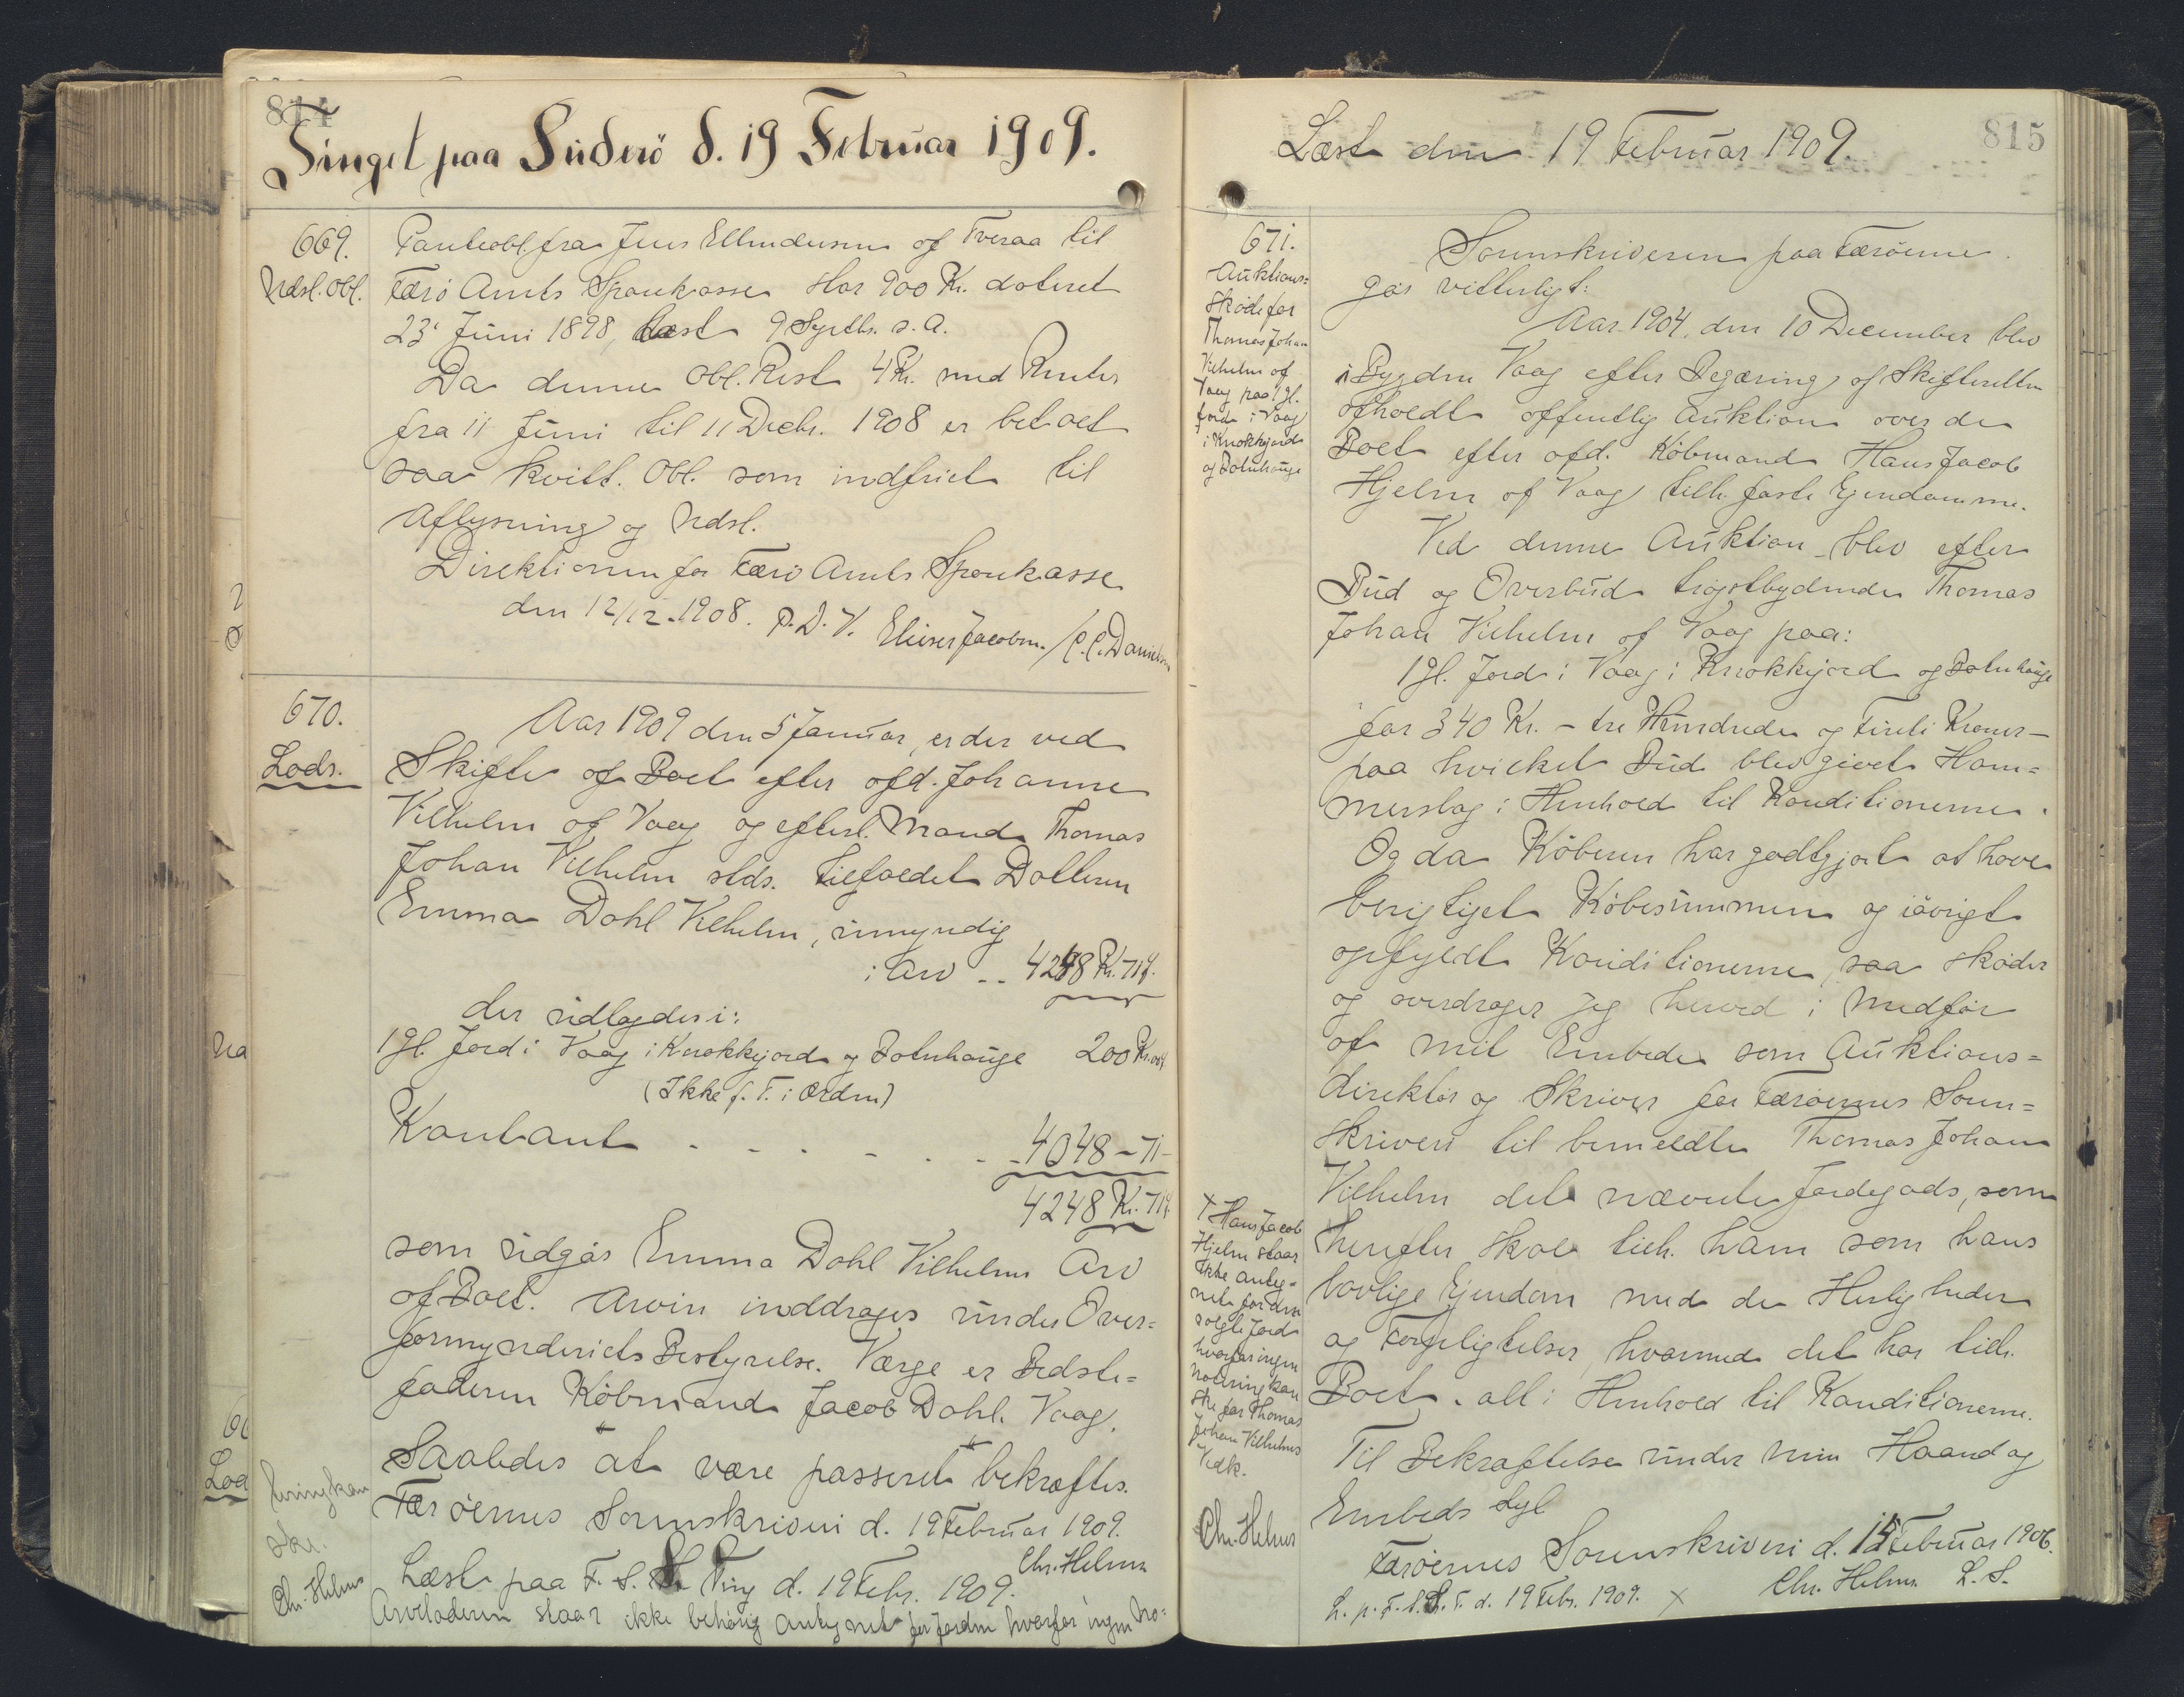 814
Tinget paa Süderö d. 19 Februar 1909.
669.
Udsl. Obl.
Panteobl. fra Jens Ellendersen af Tveraa til
Færö Amts Sparekasse stor 900 Kr. dateret
23' Juni 1898, læst 9 Septbr. s. A.
Da denne Obl. Rest 4 Kr. med Renter
fra 11 Juni til 11 Decbr. 1908 er betalt
saa kvitt. Obl. som indfriet til
Aflysning og Udsl.
Direktionen for Færö Amts Sparekasse
den 12/12-1908. P. D. V. Elieser Jacobsen. / C. C. Danielsen
670.
Lodr.
Aar 1909 den 5 Januar, er der ved
Skifte af Boet efter afd. Johanne
Vilhelm af Vaag og efterl. Mand Thomas
Johan Vilhelm slds. tilfaldet Datteren
Emma Dahl Vilhelm, umyndig
i Arv .. 4248 Kr. 71 f.
der udlagdes i:
1 gl. Jord i Vaag i Knokkjord og Botnhauge 200 Kr. 00 f.
(Ikke p. T. i Orden)
Kontant - - - - - - 4048 - 71 -
4248 Kr. 71 f.
som udgör Emma Dahl Vilhelms Arv
af Boet. Arven inddrages under Over=
formynderiets Bestyrelse. Værge er Bedste=
faderen Köbmand Jacob Dahl. Vaag.
Saaledes at være passeret bekræftes.
Færöernes Sorenskriveri d. 19 Februar 1909.
Chr. Helms
Læst paa F. S. S. Ting d. 19 Febr. 1909.
Arveladeren staar ikke behörig antegnet for Jorden hvorfor ingen No=
tering kan
ske.
Chr. Helms
815
Læst den 19 Februar 1909.
671.
Auktions=
sköde for
Thomas Johan
Vilhelm af
Vaag paa 1 gl.
Jord i Vaag
i Knokkjord
og Botnhauge
Sorenskriveren paa Færöerne
gör vitterligt:
Aar 1904, den 10 December blev
i Bygden Vaag efter Begæring af Skifteretten
afholdt offentlig Auktion over de
Boet efter afd. Köbmand Hans Jacob
Hjelm af Vaag tilh. faste Ejendomme.
Ved denne Auktion blev efter
Bud og Overbud höjstbydende Thomas
Johan Vilhelm af Vaag paa:
1 gl. Jord i Vaag i Knokkjord og Botnhauge
for 340 Kr. - tre Hundrede og Firti Kroner -
paa hvilket Bud blev givet Ham=
merslag i Henhold til Konditionerne.
Og da Köberen har godtgjort at have
berigtiget Köbesummen og iövrigt
opfyldt Konditionerne, saa sköder
og overdrager jeg herved i Medför
af mit Embede som Auktions=
direktör og Skriver for Færöernes Soren=
skriveri til bemeldte Thomas Johan
Vilhelm det nævnte Jordegods, som
herefter skal tilh. ham som hans
lovlige Ejendom med de Herligheder
og Forpligtelser, hvormed det har tilh.
Boet. alt i Henhold til Konditionerne.
Til Bekræftelse under min Haand og
Embeds Segl
Færöernes Sorenskriveri d. 15 Februar 1906.
Chr. Helms L. S.
L. p. F. S. S. T. d. 19 Febr. 1909. x
x Hans Jacob
Hjelm staar
ikke anteg=
net for den
solgte Jord
hvorfor ingen
Notering kan
ske for Thomas
Johan Vilhelms
Vedk.
Chr. Helms